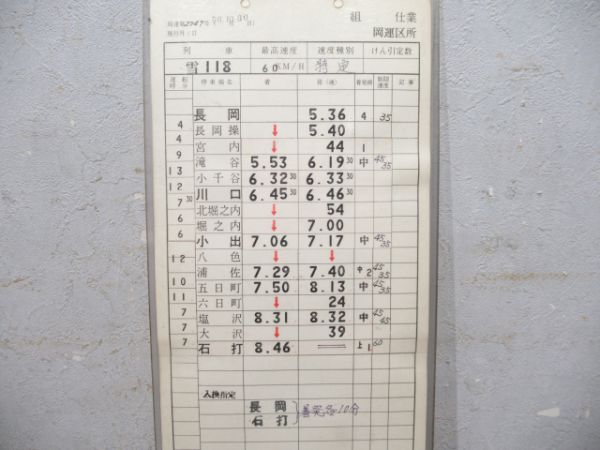 組 仕業
岡運区所
列車 最高速度 速度種別 けん引定数
雪118 60KM/H 特定
運転時分 停車場名 着 発(通) 着発線 制限速度 記事
長岡 5.36 4 35
4
長岡操 ↓ 5.40
4
宮内 ↓ 44 1
9
滝谷 5.53 6.19 30 中 45 35
13
小千谷 6.32 30 6.33 30
12
川口 6.45 30 6.46 30
7 30
北堀之内 ↓ 54
6
堀之内 ↓ 7.00
6
小出 7.06 7.17 中 45 35
八色 ↓ ↓
12
浦佐 7.29 7.40 中2 45 35
10
五日町 7.50 8.13 中 45 35
11
六日町 ↓ 24
7
塩沢 8.31 8.32 中 45 45
7
大沢 ↓ 39
7
石打 8.46 上1 60
入換指定
長岡
石打